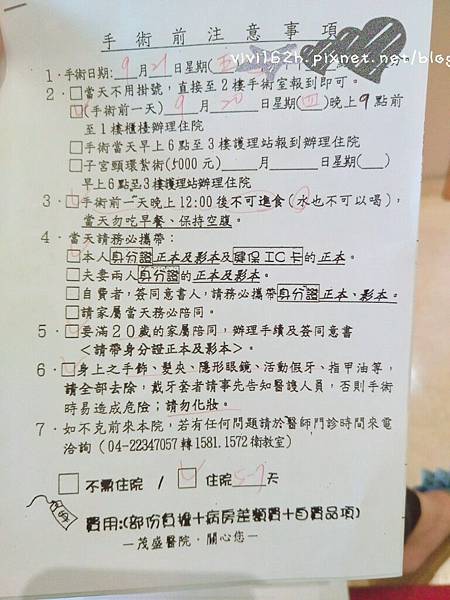 手術前注意事項
vivi162h.pixnet.net/blog
1．手術日期:9月21日星期(五)
2．□當天不用掛號，直接至2樓手術室報到即可。
□(手術前一天) 9月20日星期(四)晚上9點前
至1樓櫃檯辦理住院
□手術當天早上6點至3樓護理站報到辦住院
□子宮頸環紮術(5000元)___月___日星期(__)
早上6點至3樓護理站辦理住院
3．□手術前一天晚上12:00後不可進食(水也不可以喝)，
當天勿吃早餐、保持空腹。
4．當天請務必攜帶：
□本人身分證正本及影本及健保IC卡的正本。
□夫妻兩人身分證的正本及影本。
□自費者，簽同意書人，請務必攜帶身分證正本、影本。
□請家屬當天務必陪同。
5．□要滿20歲的家屬陪同，辦理手續及簽同意書
<請帶身分證正本及影本>。
6．□身上之手飾、髮夾、隱形眼鏡、活動假牙、指甲油等，
請全部去除，戴牙套者請事先告知醫護人員，否則手術
時易造成危險；請勿化妝。
7．如不克前來本院，若有任何問題請於醫師門診時間來電
洽詢（04-22347057轉1581.1572衛教室）
□ 不需住院 / □ 住院5-7天
費用:(部份負擔+病房差額費+自費品項)
—茂盛醫院．關心您—